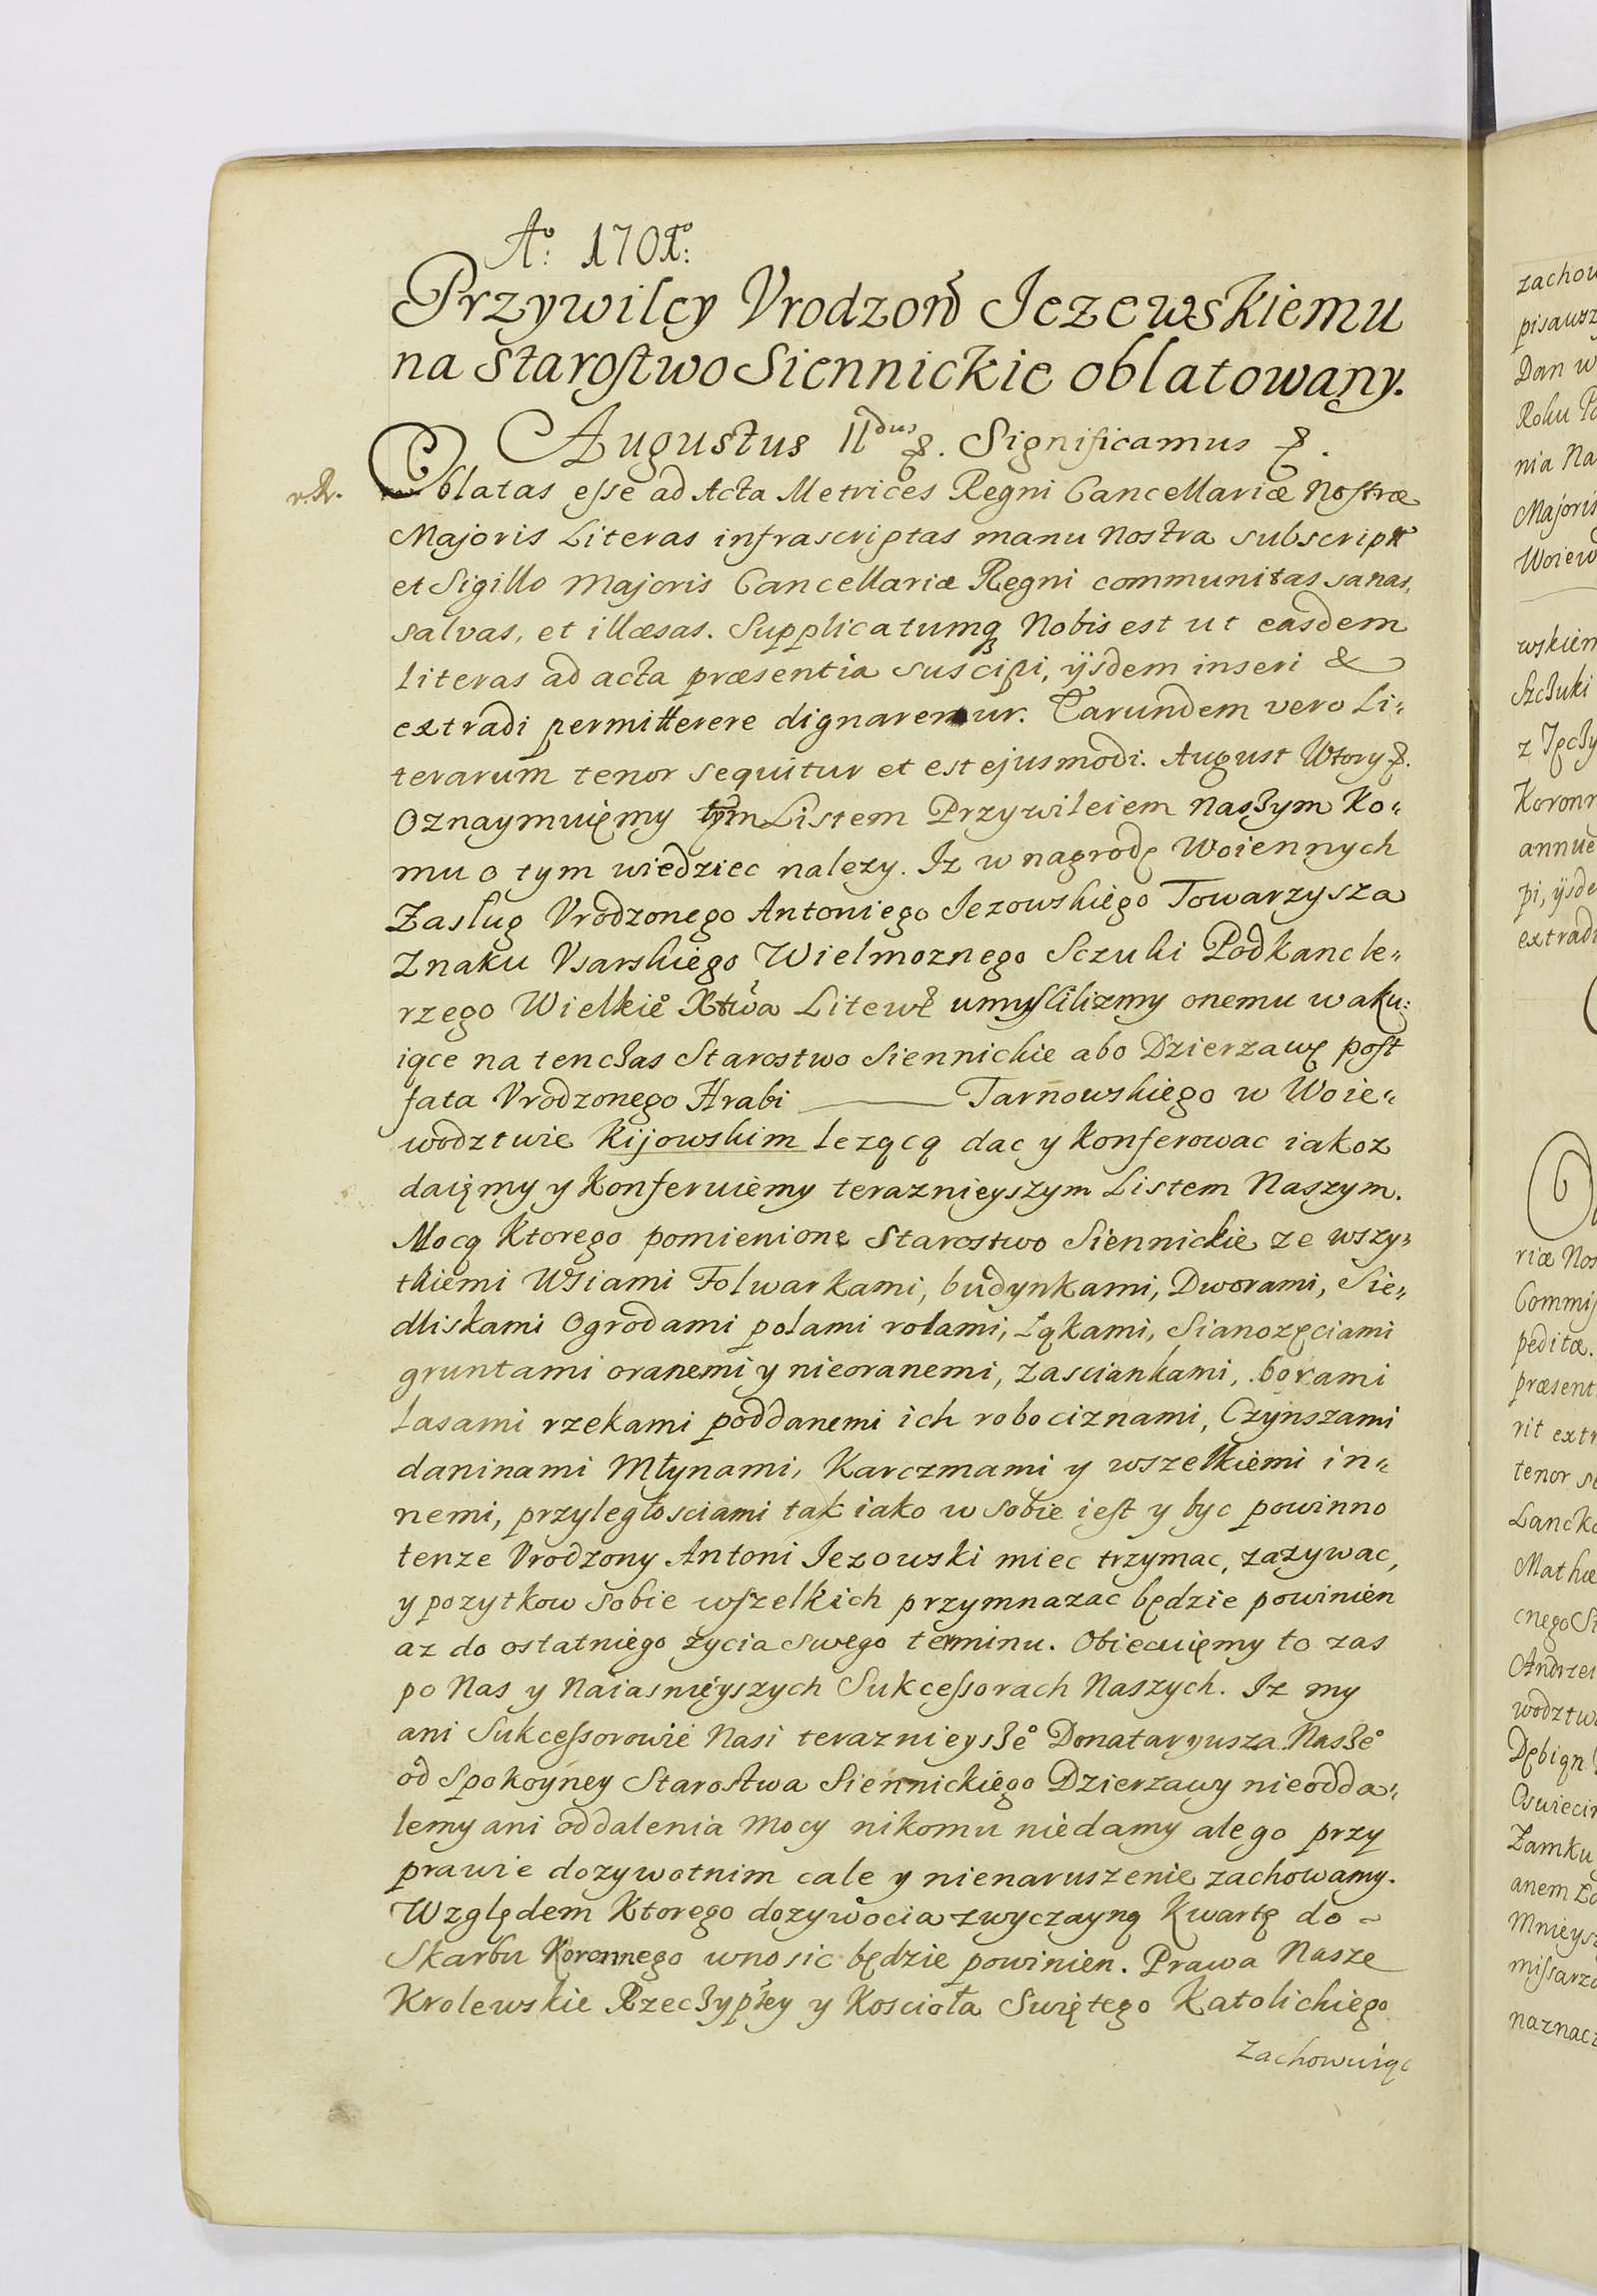 Aº: 1701º:
Przywiley Vrodzonḿ Jezewskiemu
na Starostwo Siennickie oblatowany.
Augustus IIdus &. Significamus &.
v. R.
Oblatas esse ad Acta Metrices Regni Cancellariæ Nostræ
Majoris Literas infrascriptas manu Nostra subscript
et Sigillo Majoris Cancellariæ Regni communitas sanas,
salvas, et illæsas. Supplicatumq Nobis est ut easdem
literas ad acta præsentia suscipi, ijsdem inseri &
extradi permitterere dignaremur. Earundem vero Li-
terarum tenor sequitur et est ejusmodi. August Wtory &.
Oznaymuięmy tym Listem Przywileiem naszym Ko-
mu o tym wiedziec nalezy. Iz w nagrodę Woiennych
Zaslug Vrodzonego Antoniego Jezowskiego Towarzysza
Znaku Vsarskiego Wielmoznego Sczuki Podkancle-
rzego Wielkieº Xtwa Litewº umyslilizmy onemu waku-
iące na tenczas Starostwo Siennickie abo Dzierzawę post
fata Vrodzonego Hrabi ——— Tarnowskiego w Woie-
wodztwie Kijowskim lezącą dac y konferowac iakoz
daięmy y Konferuiemy teraznieyszym Listem Naszym.
Mocą Ktorego pomienionę Starostwo Siennickie ze wszy-
tkiemi Wsiami Folwarkami, budynkami, Dworami, Sie-
dliskami Ogrodami polami rolami, Łąkami, Sianozęciami
gruntami oranemi y nieoranemi, zasciankami, borami
Lasami rzekami poddanemi ich robociznami, Czynszami
daninami Młynami, Karczmami y wszelkiemi in-
nemi, przyległosciami tak iako w sobie iest y byc powinno
tenze Vrodzony Antoni Jezowski miec trzymac, zazywac,
y pozytkow sobie wszelkich przymnazac będzie powinien
az do ostatniego zycia swego terminu. Obiecuięmy to zas
po Nas y Naiasnieyszych Sukcessorach Naszych. Iz my
ani Sukcessorowie Nasi teraznieyszeº Donataryusza Naszeº
od Spokoyney Starostwa Siennickiego Dzierzawy nieodda-
lemy ani oddalenia Mocy nikomu niedamy ale go przy
prawie dozywotnim cale y nienaruszenie zachowamy.
Względem Ktorego dozywocia zwyczayną Kwartę do
Skarbu Koronnego wnosic będzie powinien. Prawa Nasze
Krolewskie Rzeczyptey y Koscioła Swiętego Katolickiego
zachowuiąc